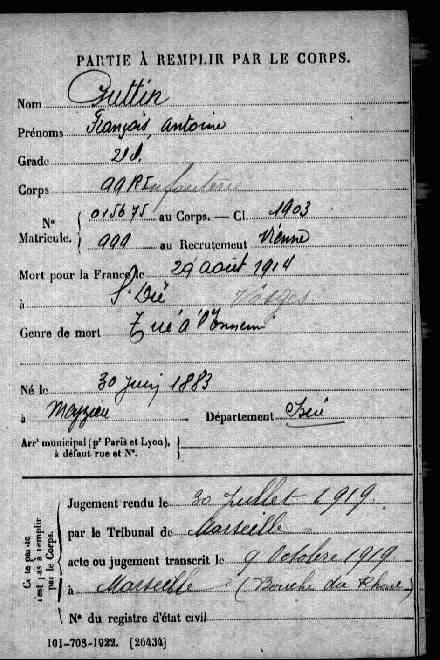 PARTIE À REMPLIR PAR LE CORPS.
Nom Guttin
Prénoms François, Antoine
Grade 2 d.
Corps 99 R I Infanterie
Nº Matricule. { 015675 au Corps. — Cl. 1903
999 au Recrutement Vienne
Mort pour la France le 29 août 1914
à St Dié Vosges
Genre de mort Tué à l'Ennemi
Né le 30 juin 1883
à Meyzieu Département Isère
Arrt municipal (pr Paris et Lyon), à défaut rue et Nº. {
Cette partie n'est pas à remplir par le Corps.
Jugement rendu le 30 Juillet 1919.
par le Tribunal de Marseille
acte ou jugement transcrit le 9 Octobre 1919
à Marseille (Bouche du Rhone)
Nº du registre d'état civil
101-708-1922. [26434]